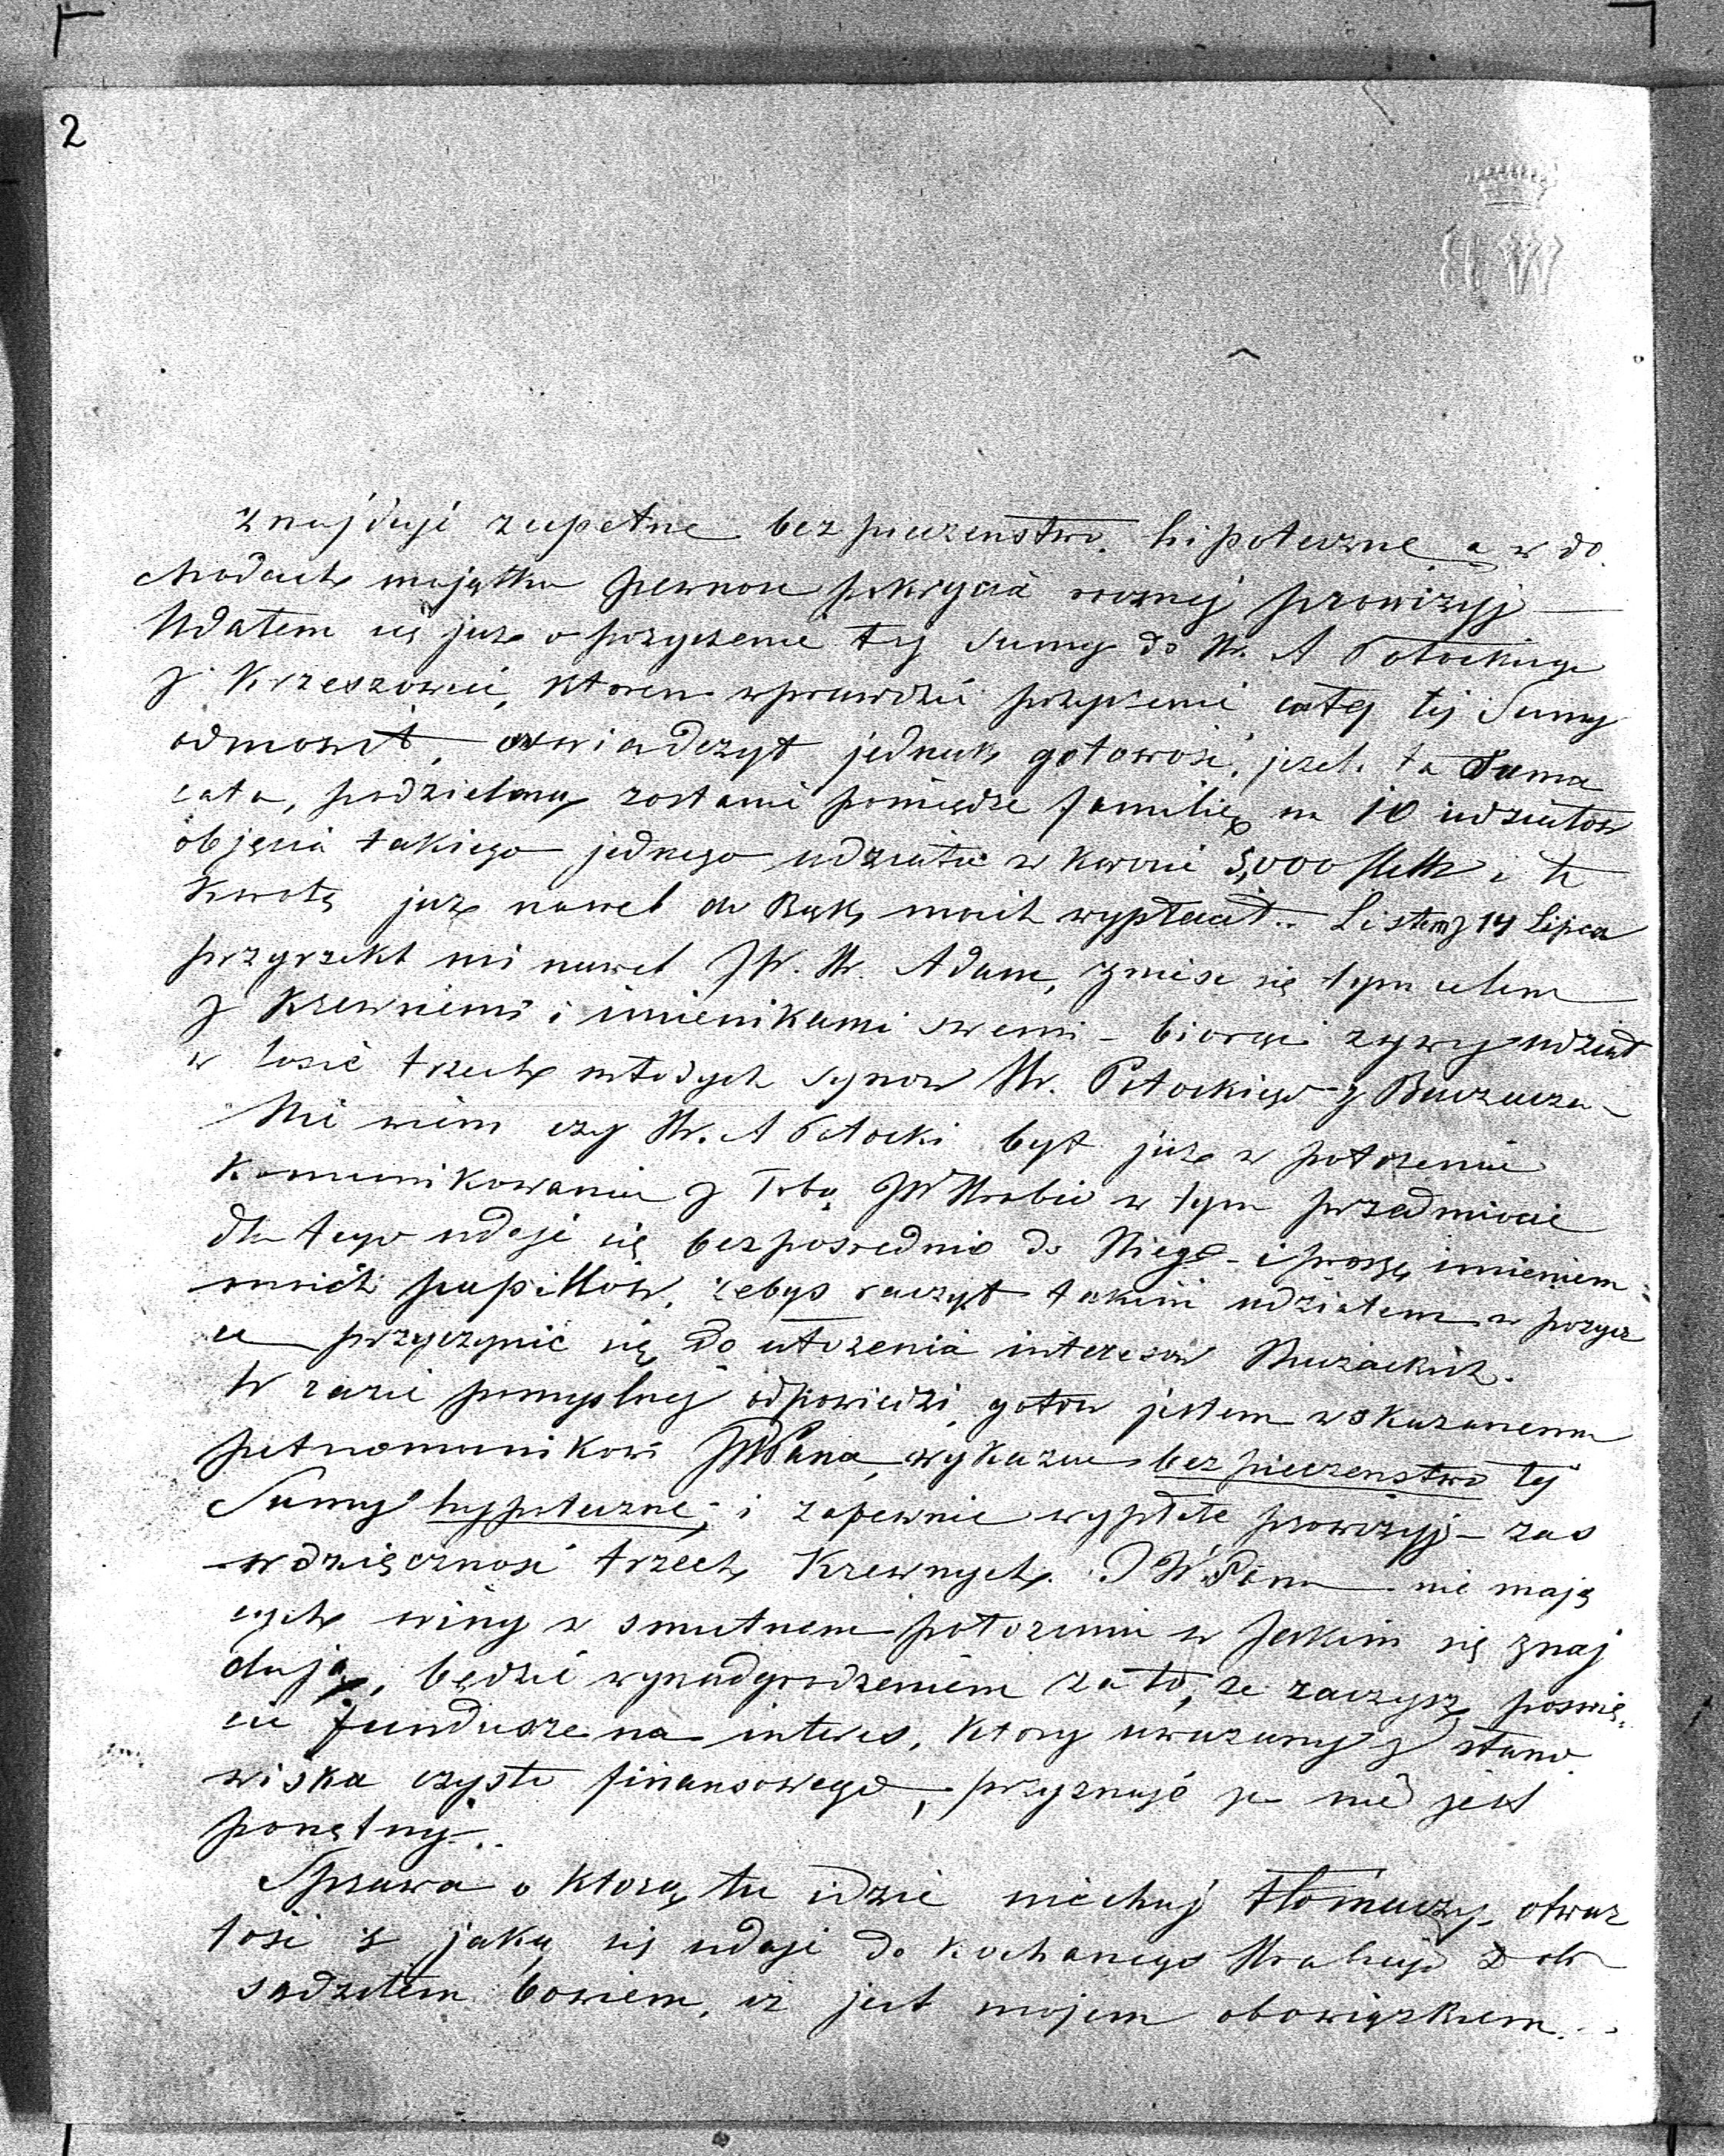 2
EW
znajduje zupełne bezpieczenstwo hipoteczne, a w do
chodach majątku pewnosc pokrycia rocznej prowizyj —
Udałem się juz o pozyczenie tej sumy do Hr. A Potockiego
z Krzeszowic, ktoren wprawdzie pozyczenie całej tej Sumy
odmowił, oswiadczył jednak gotowosc, jezeli ta Suma
cała, podzieloną zostanie pomiędze familię na 10 udziałow
objęcia takiego jednego udziału w kwocie 5,000 i tę
kwotę juz nawet do Rąk moich wypłacił. Listem z 14 Lipca
przyrzekł mi nawet JW. Hr. Adam, zniesc się tym celem
z Krewniemi i imienikami swemi – biorąc zywy udział
w losie trzech młodych synow Hr. Potockiego z Buczacza –
Nie wiem czy Hr. A Potocki był juz w połozeniu
Komunikowania z Tobą JWHrabio w tym przedmiocie
dla tego udaje się bezposrednio do Niego – i proszę imieniem
moich pupillów, zebys raczył takim udziałem w pozycz
ce przyczynić się do ułozenia interesow Buczackich.
W razie pomyslnej odpowiedzi, gotow jestem wskazanemu
pełnomocnikowi JWPana, wykazac bezpieczenstwo tej
Sumy hypoteczne, i zapewnic wypłatę prowizyj – zas
wdzięcznosć trzech Krewnych JW.Pana nie mają
cych winy w smutnem połozeniu w Jakim się znaj
dują, będzie wynadgrodzeniem za to, ze raczysz poswię
cic fundusze na interes, ktory uwazany z stano
wiska czysto finansowego, przyznaję ze nie jest
ponętny.
Sprawa o ktorą tu idzie niechaj tłomaczy otwar
tosc z jaką się udaje do kochanego Hrabiego
sądziłem bowiem, iz jest mojem obowiązkiem